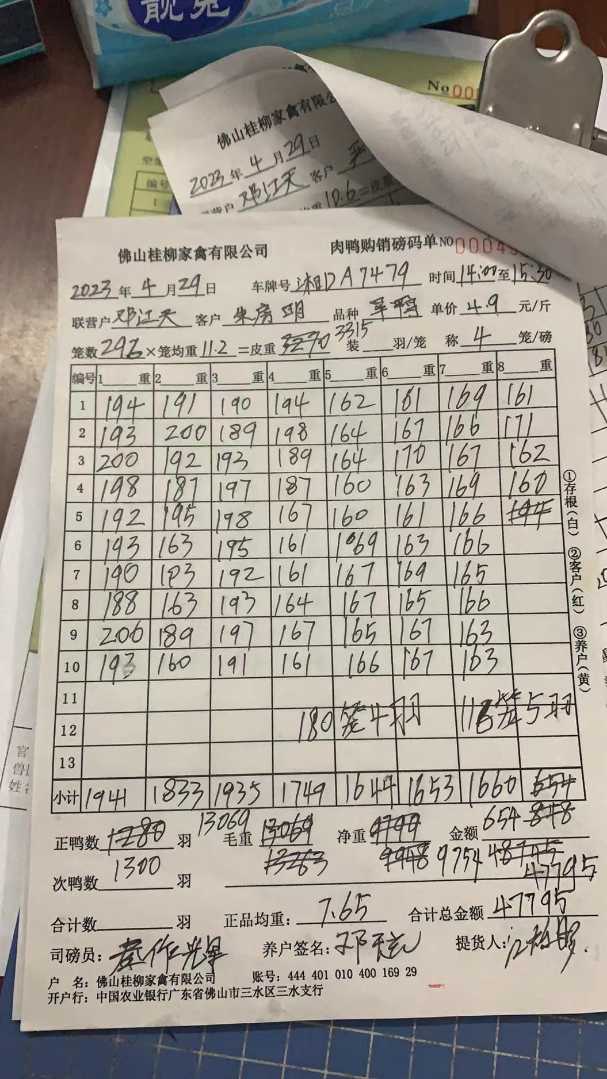 靓兔
No00
佛山桂柳家禽有限公
2023年4月29日
邓江天 客户
10.6=皮重
佛山桂柳家禽有限公司 肉鸭购销磅码单NO 0004
2023年4月29日 车牌号 湘DA7479 时间14:00至15:30
联营户邓江天 客户 朱房明 品种 单价4.9元/斤
笼数296×笼均重11.2=皮重 3315 装 羽/笼 称 4 笼/磅
编号 1 重 2 重 3 重 4 重 5 重 6 重 7 重 8 重
1 194 191 190 194 162 181 169 161
2 193 200 189 198 164 167 166 171
3 200 192 193 189 164 170 167 162
4 198 187 197 187 160 163 169 160
5 192 195 198 167 160 161 166 194
6 193 163 195 161 169 163 166
7 190 183 192 161 167 169 165
8 188 163 193 164 167 165 166
9 200 189 197 167 165 167 163
10 193 160 191 161 166 167 163
11
12 180笼4羽 116笼5羽
13
小计 1941 1833 1935 1749 1644 1653 1660 654
正鸭数 1280 羽 13069 毛重 13069 净重 金额 654
1300 13263 9948 9754 47795
次鸭数 羽
合计数 羽 正品均重: 7.65 合计总金额 47795
司磅员: 养户签名: 提货人:
户 名: 佛山桂柳家禽有限公司 账号: 444 401 010 400 169 29
开户行: 中国农业银行广东省佛山市三水区三水支行
①存根(白) ②客户(红) ③养户(黄)